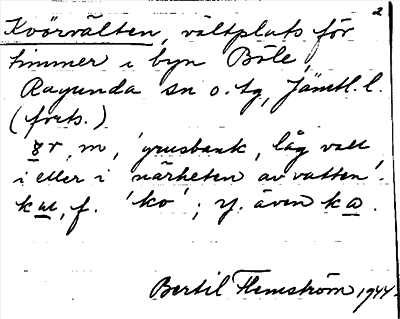 2
Kvörvälten, vältplats för
timmer i byn Böle
Ragunda sn o. tg, Jämtl. l.
(forts.)
ɞr, m, 'grusbank, låg vall
i eller i närheten av vatten'.
k , f. 'ko'; y. även ka.
Bertil Flemström 1944.